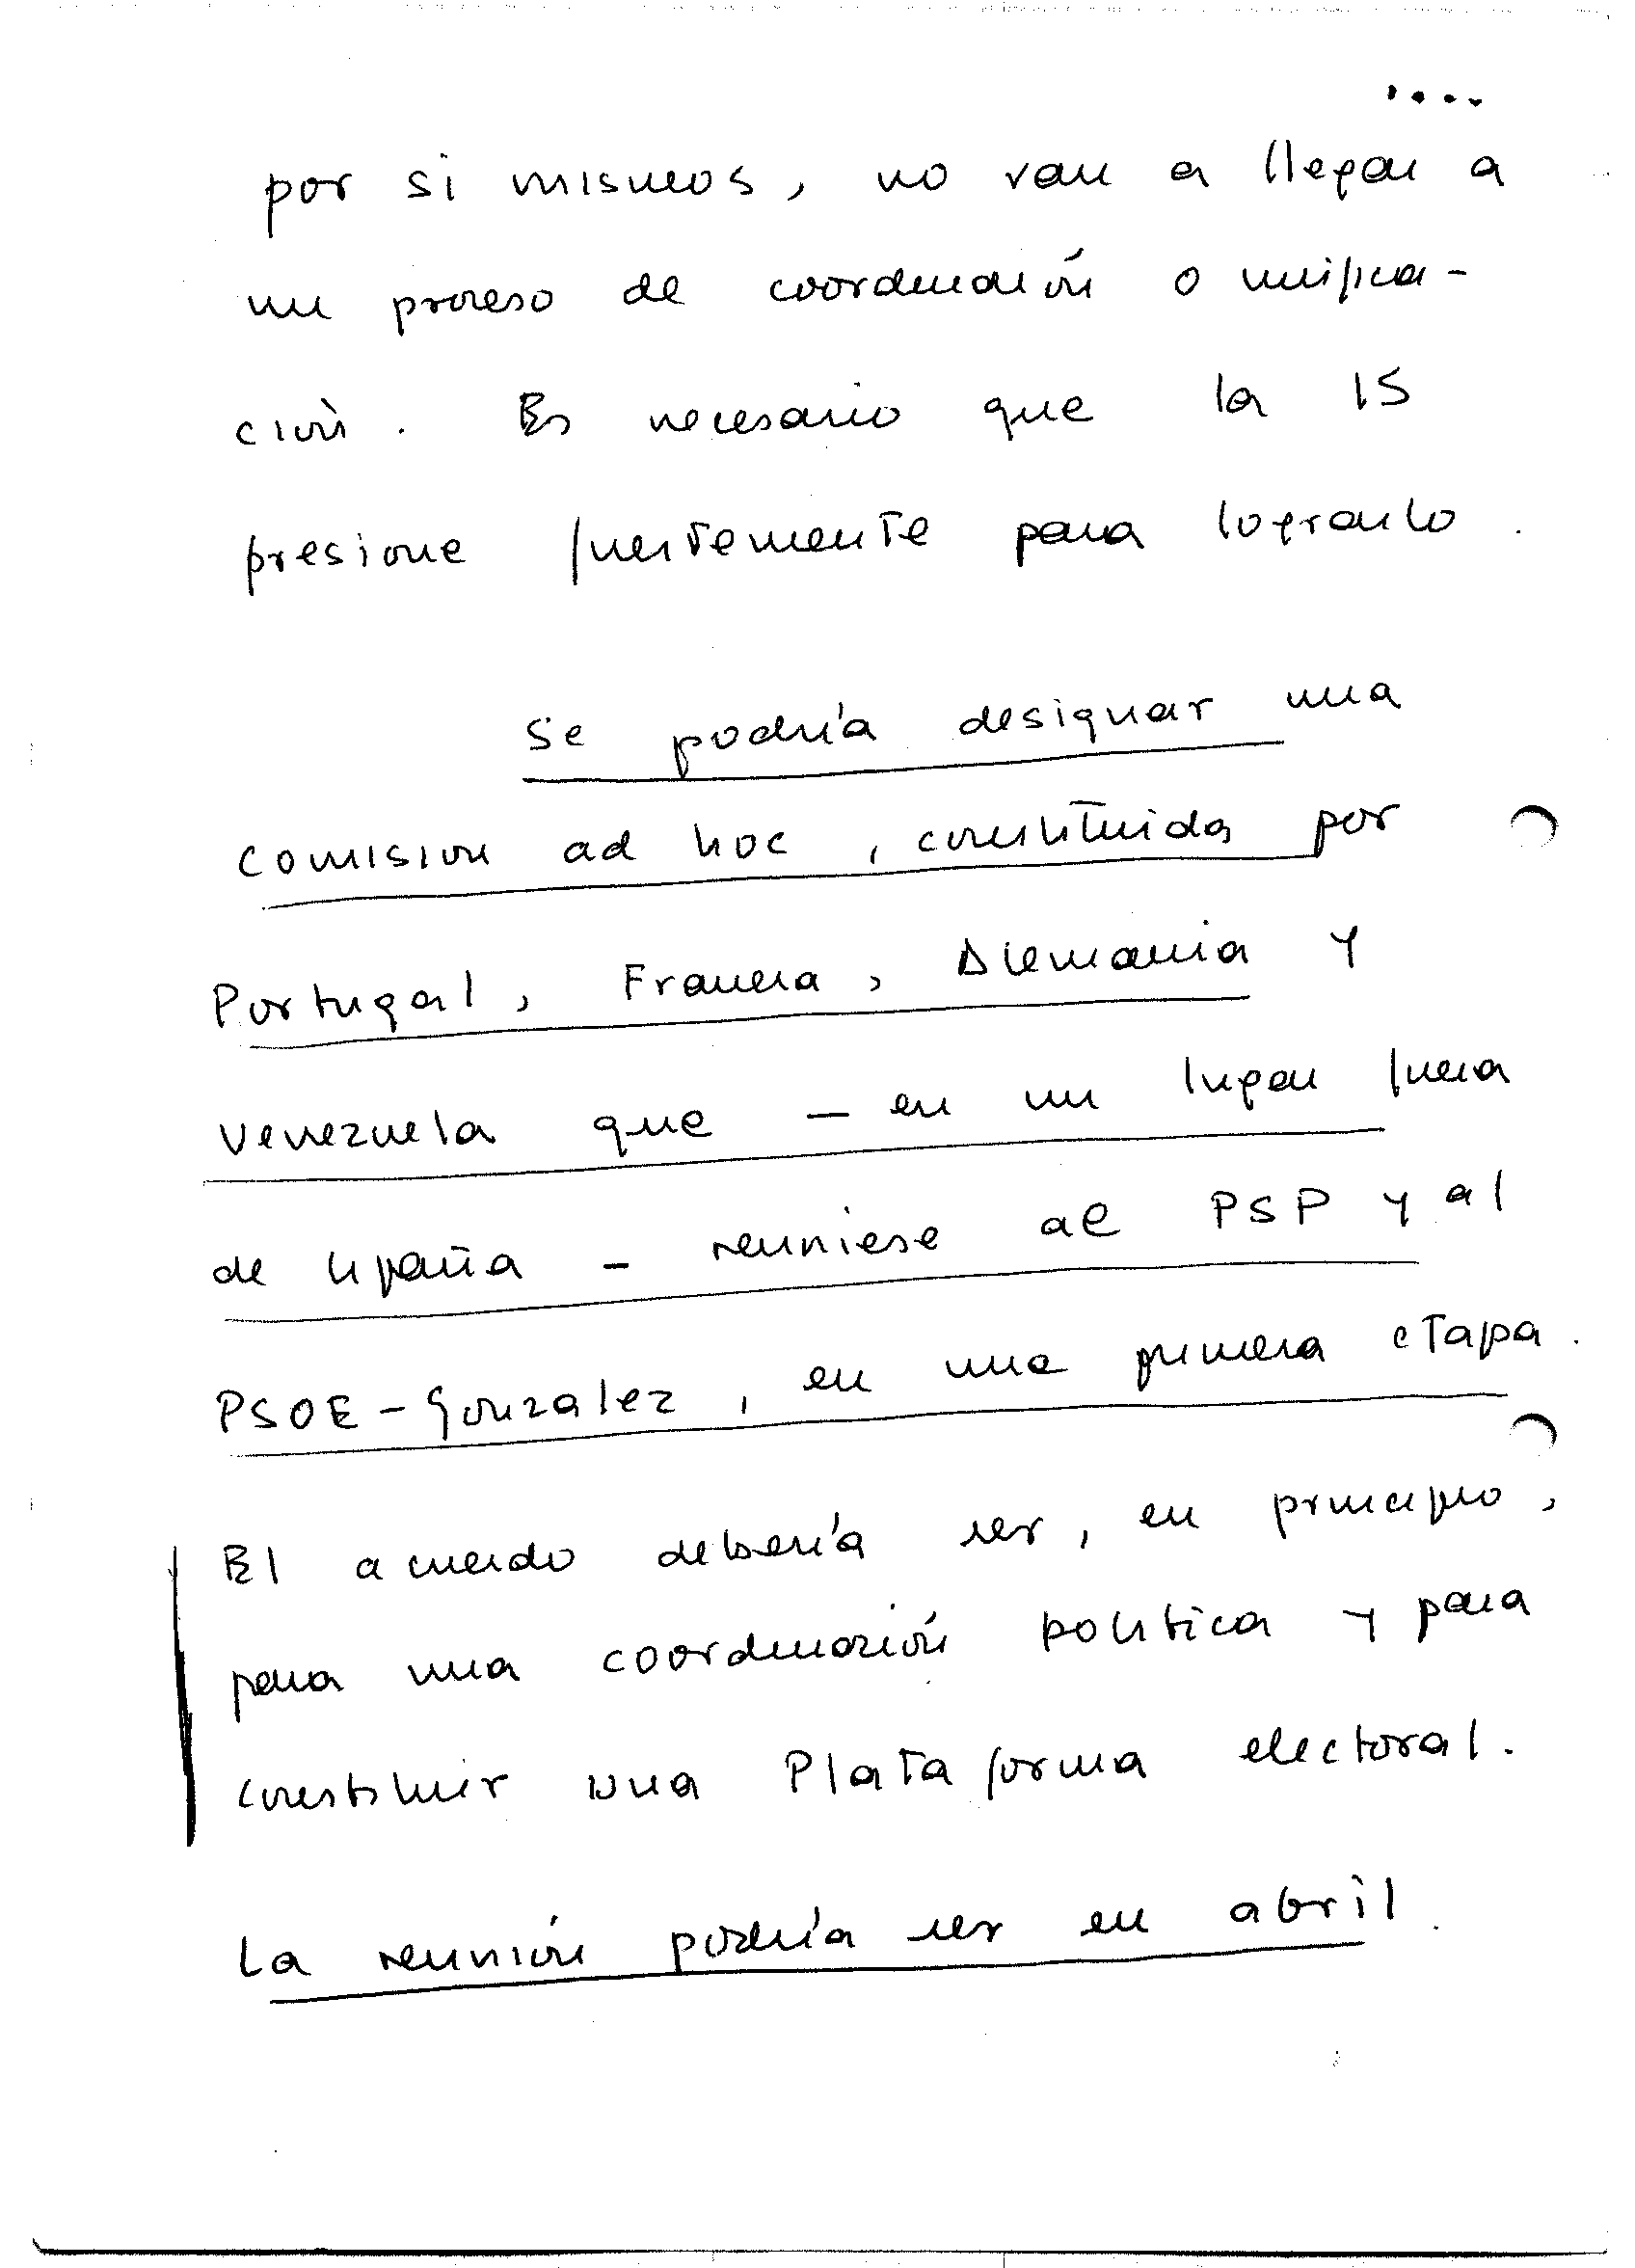 ....
por si mismos, no van a llegar a
un proceso de coordinación o unifica-
ción. Es necesario que la IS
presione fuertemente para lograrlo.
Se podría designar una
comision ad hoc, constituida por
Portugal, Francia, Alemania y
Venezuela que - en un lugar fuera
de España - reuniese al PSP y al
PSOE-Gonzalez, en una primera etapa.
El acuerdo debería ser, en principio,
para una coordinación política y para
constituir una Plataforma electoral.
La reunión podría ser en abril.